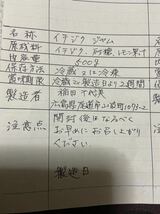 名称 イチジクジャム
原材料 イチジク、砂糖、レモン果汁
内容量 500g
保存方法 冷蔵又は冷凍
賞味期限 冷蔵で製造日より2週間
製造者 稲田千代美
広島県尾道市
注意点 開封後はなるべく
お早めにお召し上がり
ください
製造日